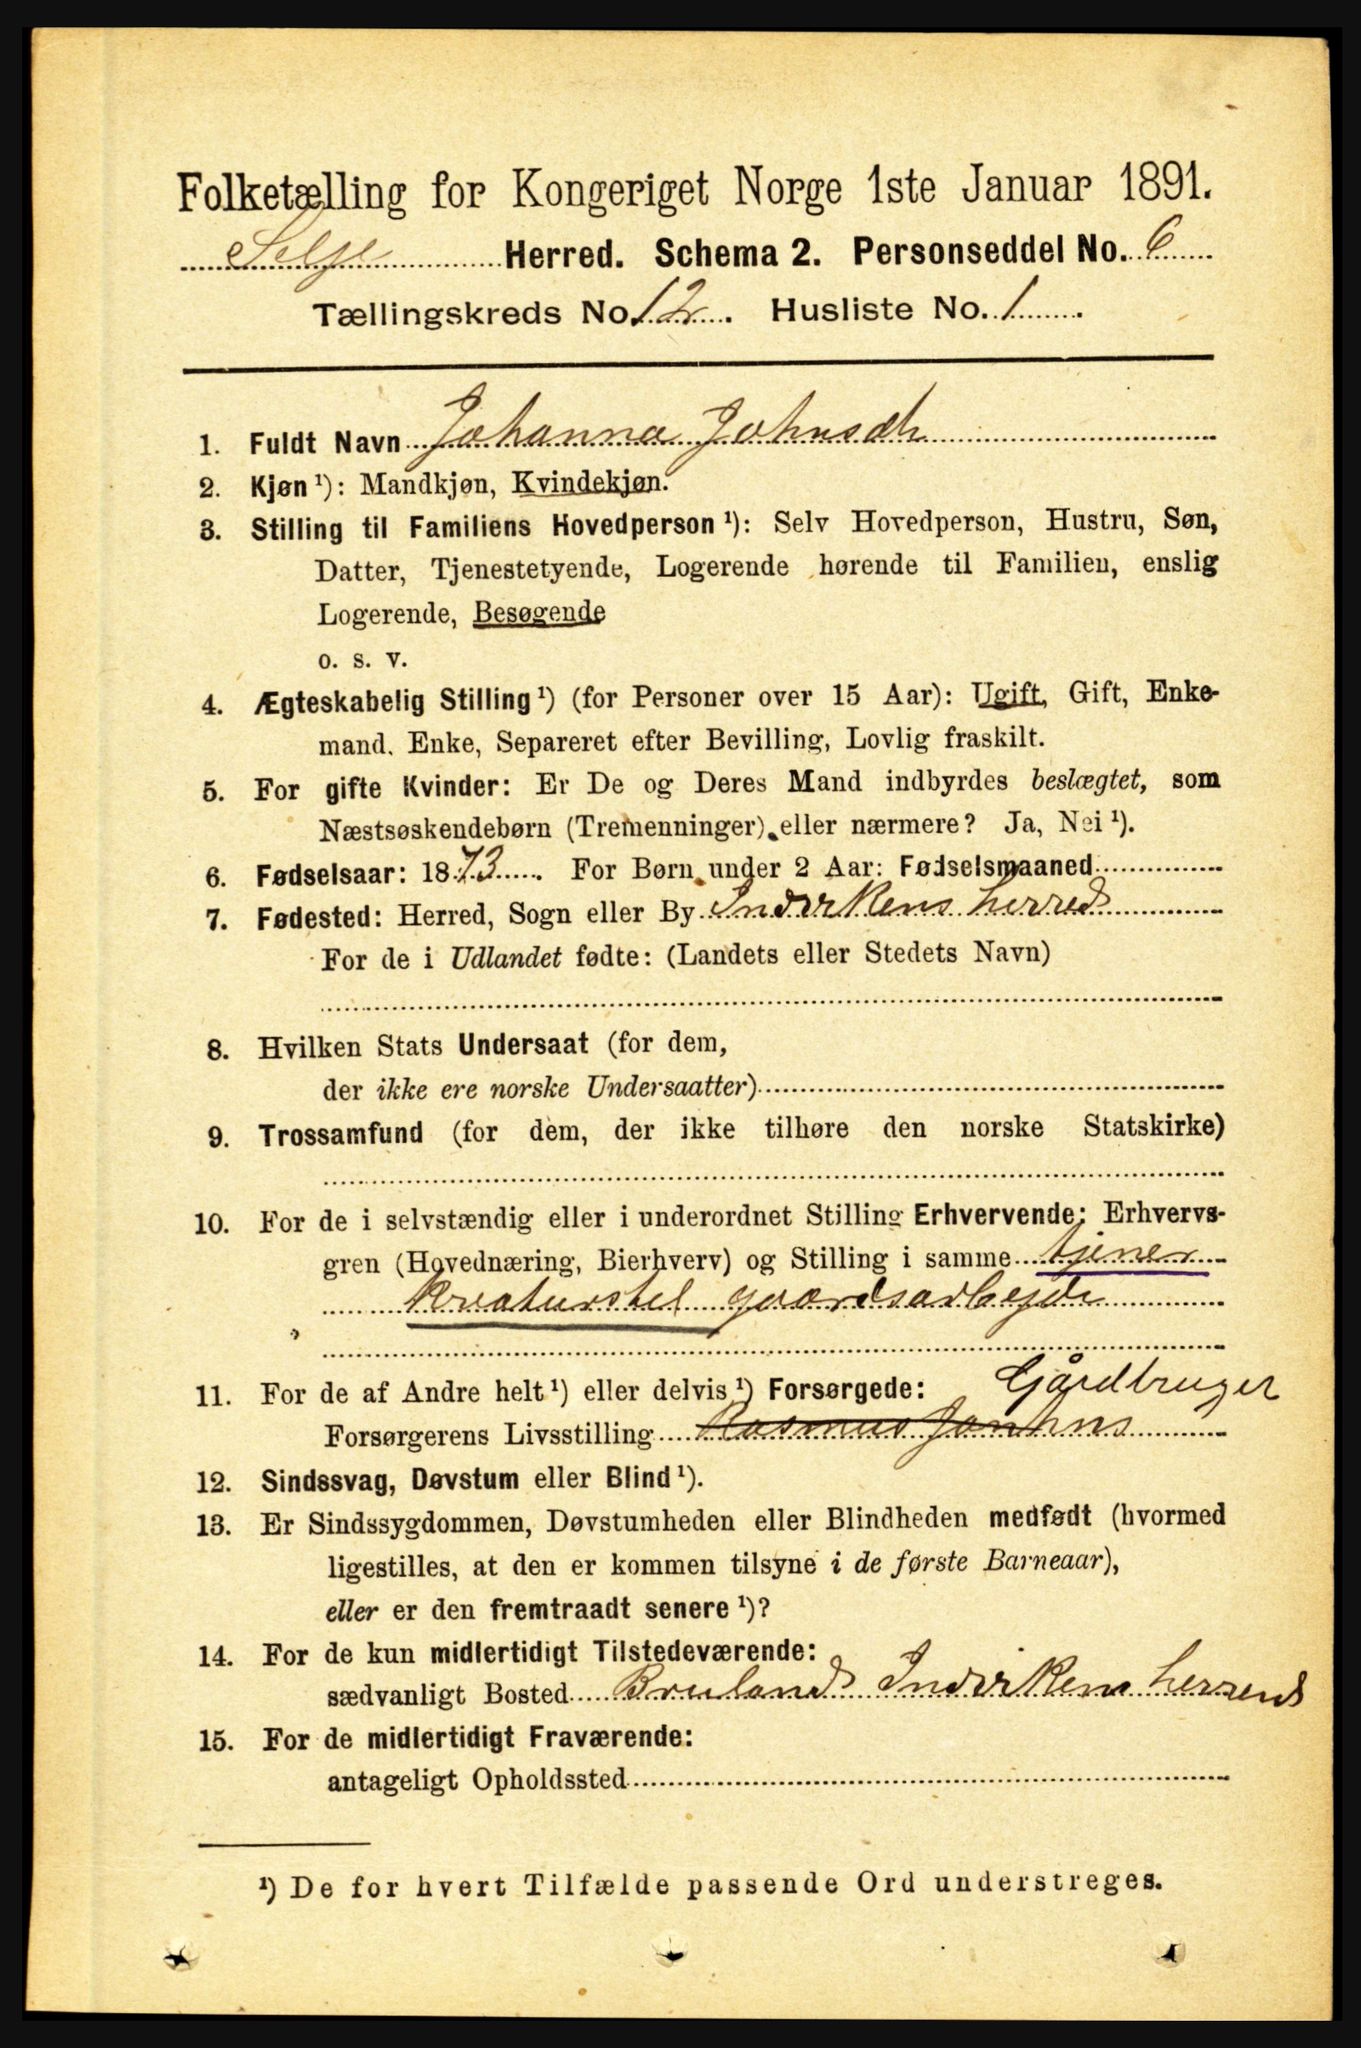 Folketælling for Kongeriget Norge 1ste Januar 1891.
Selje Herred. Schema 2. Personseddel No. 6
Tællingskreds No. 12. Husliste No. 1
1. Fuldt Navn Johanna Johnsdtr
2. Kjøn ¹): Mandkjøn, Kvindekjøn.
3. Stilling til Familiens Hovedperson ¹): Selv Hovedperson, Hustru, Søn,
Datter, Tjenestetyende, Logerende hørende til Familien, enslig
Logerende, Besøgende
o. s. v.
4. Ægteskabelig Stilling ¹) (for Personer over 15 Aar): Ugift, Gift, Enke-
mand, Enke, Separeret efter Bevilling, Lovlig fraskilt.
5. For gifte Kvinder: Er De og Deres Mand indbyrdes beslægtet, som
Næstsøskendebørn (Tremenninger), eller nærmere? Ja, Nei ¹).
6. Fødselsaar: 1873. For Børn under 2 Aar: Fødselsmaaned
7. Fødested: Herred, Sogn eller By Indvikens herred
For de i Udlandet fødte: (Landets eller Stedets Navn)
8. Hvilken Stats Undersaat (for dem,
der ikke ere norske Undersaatter)
9. Trossamfund (for dem, der ikke tilhøre den norske Statskirke)
10. For de i selvstændig eller i underordnet Stilling Erhvervende: Erhvervs-
gren (Hovednæring, Bierhverv) og Stilling i samme tjener
kreaturstel gaardsarbejde
11. For de af Andre helt ¹) eller delvis ¹) Forsørgede: Gårdbruger
Forsørgerens Livsstilling Rasmus
12. Sindssvag, Døvstum eller Blind ¹).
13. Er Sindssygdommen, Døvstumheden eller Blindheden medfødt (hvormed
ligestilles, at den er kommen tilsyne i de første Barneaar),
eller er den fremtraadt senere ¹)?
14. For de kun midlertidigt Tilstedeværende:
sædvanligt Bosted Indvikens herred
15. For de midlertidigt Fraværende:
antageligt Opholdssted
¹) De for hvert Tilfælde passende Ord understreges.